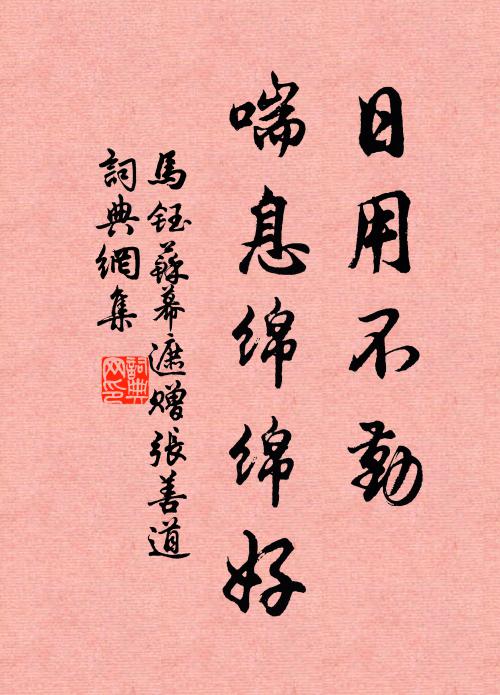 日用不勤
喘息绵绵好
馬鈺蘇幕遮贈張善道
詞典網集
詞典网印